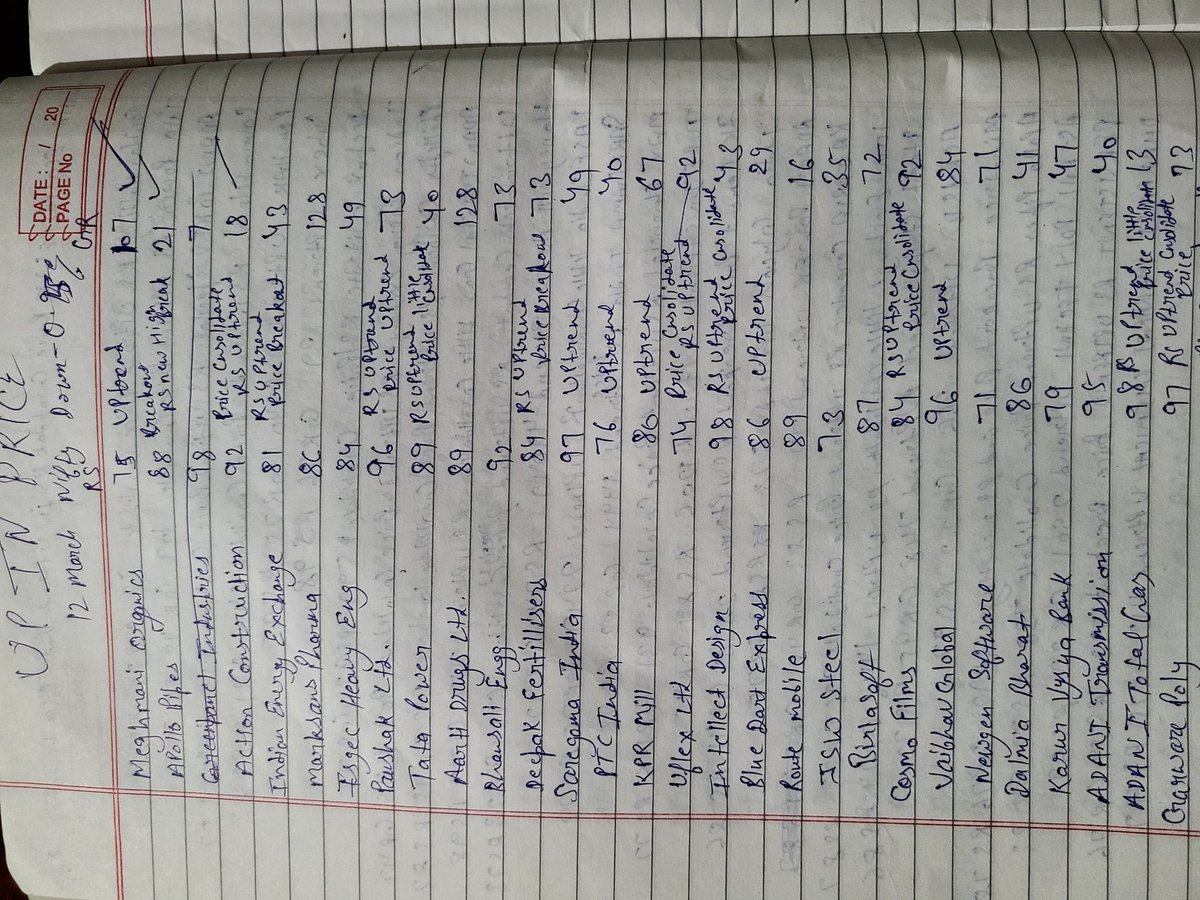 DATE: / 20
PAGE No
UP IN PRICE
12 March Nifty Down - 0.
RS GTR
Meghmani Organics 75 Uptrend 107
Apollo Pipes 88 Breakout RS new High Break 21
Greenpanel Industries 98 7
Action Construction 92 Price Cnsolidate RS Uptrend 18
Indian Energy Exchange 81 RS Uptrend Price Breakout 43
Marksans Pharma 86 128
Isgec Heavy Eng 84 49
Paushak Ltd. 96 RS Uptrend Price Uptrend 73
Tata Power 89 RS Uptrend Price little Cnsolidate 40
Aarti Drugs Ltd. 89 128
Bhansali Engg. 92 73
Deepak Fertilisers 84 RS Uptrend Price Breakout 73
Saregama India 97 Uptrend 49
PTC India 76 Uptrend 40
KPR Mill 86 Uptrend 67
Uflex Ltd 74 Price Cnsolidate RS Uptrend 92
Intellect Design. 98 RS Uptrend Price Cnsolidate 43
Blue Dart Express 86 Uptrend 29
Route mobile 89 16
JSW Steel 73 35
Birlasoft 87 72
Cosmo Films 84 RS Uptrend Price Cnsolidate 92
Vaibhav Global 96 Uptrend 84
Newgen Software 71 71
Dalmia Bharat 86 41
Karur Vysya Bank 79 47
ADANI Transmission 95 40
ADANI Total Gas 98 RS Uptrend little Price Cnsolidate 13
Garware Poly 97 RS Uptrend Price Cnsolidate 73